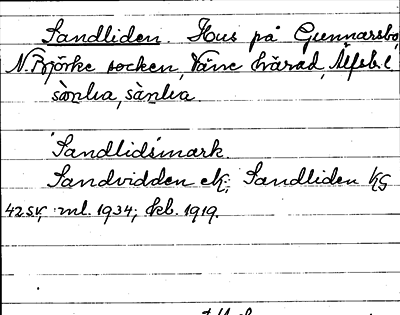 Sandliden. Hus på Gunnarsbo,
N. Björke socken, Väne härad, Älfsb. l.
sànlıa, sänlıa.
Sandlidsmark.
Sandvidden ek; Sandliden KG
42 sv, ml. 1934; kb. 1919.